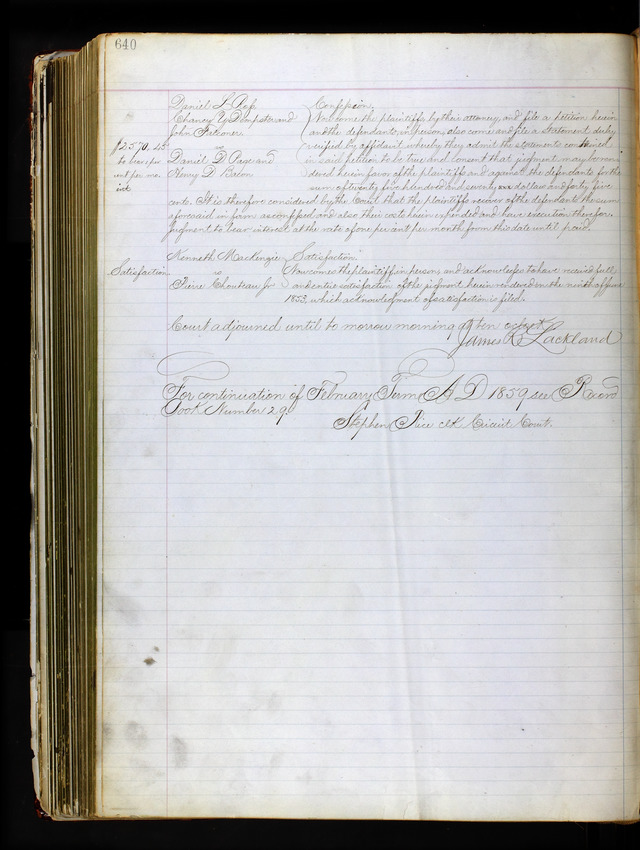 640
Daniel L. Ropp } Confession.
Chancey Y. Dempster and } Now come the plaintiffs by their attorney, and file a petition herein
John Fetrower } and the defendants, in person, also come and file a statement, duly
$2570.45 vs } verified by affidavit, whereby they admit the statements contained
to bear 1 per Daniel D. Page and } in said petition to be true and consent that judgment may be ren-
cent per mo. Henry D. Bacon } dered herein in favor of the plaintiffs and against the defendants for the
int. sum of twenty five hundred and seventy dollars and forty five
cents. It is therefore considered by the Court that the plaintiffs recover of the defendants the sum
aforesaid in form as confessed and also their costs herein expended and have execution therefor.
Judgment to bear interest at the rate of one per cent per month from this date until paid.
Kenneth MacKenzie } Satisfaction.
Satisfaction vs } Now comes the plaintiff in person, and acknowledges to have received full
Pierre Chouteau Jr } and entire satisfaction of the judgment herein rendered on the ninth of June
1853, which acknowledgment of satisfaction is filed.
Court adjourned until to morrow morning at ten oclock
James R Lackland
For continuation of February Term A D 1859 see Record
Book Number 29
Stephen Rice clk Circuit Court.